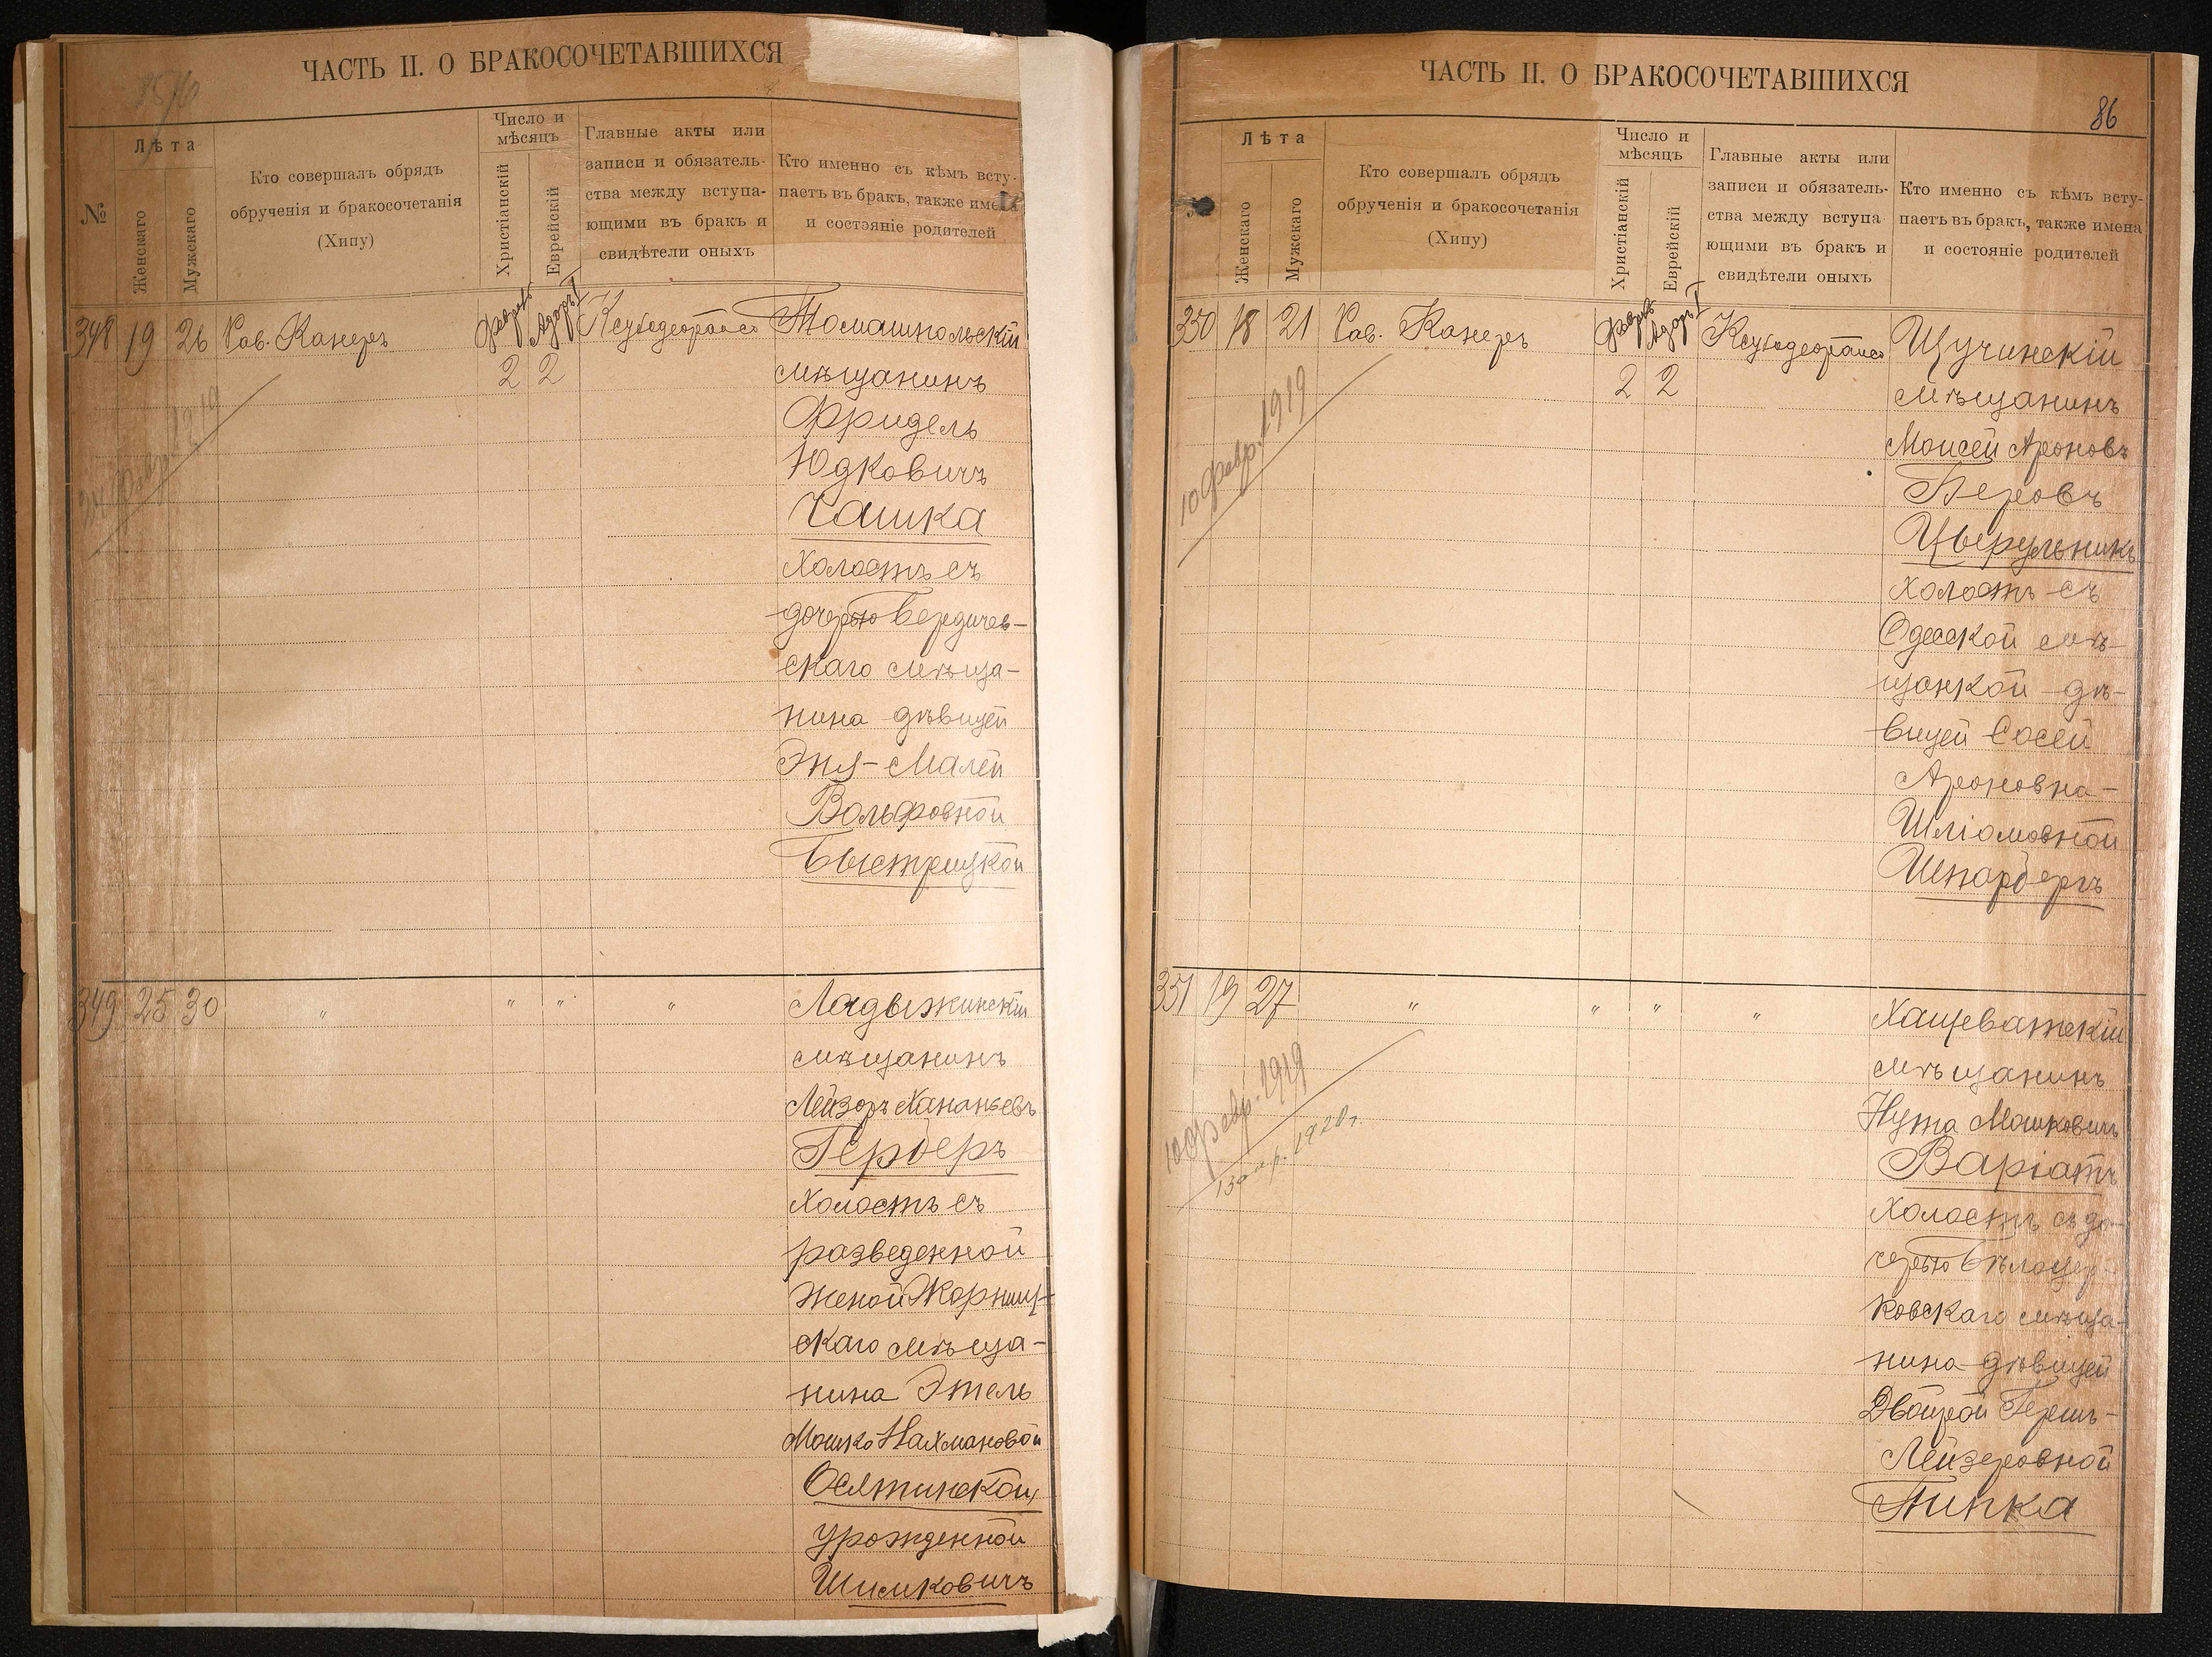 ЧАСТЬ II. О БРАКОСОЧЕТАВШИХСЯ
№
Лѣта
Женскаго
Мужскаго
Кто совершалъ обрядъ
обрученія и бракосочетанія
(Хипу)
Число и
мѣсяцъ
Христіанскій
Еврейскій
Главные акты или
записи и обязатель-
ства между вступа-
ющими въ бракъ и
свидѣтели оныхъ
Кто именно съ кѣмъ всту-
паетъ въ бракъ, также имена
и состояніе родителей
348 19 26 Рав. Канеръ
Февраль Адоръ I
2 2
Томашпольскій
мѣщанинъ
Фридель
Юдковичъ
Чашка
Холостъ съ
дочерью Бердичев-
скаго мѣща-
нина дѣвицей
Эня-Малей
Вольфовной
Быстрицкой
349 25 30 " " " "
Ладыжинскій
мѣщанинъ
Лейзоръ Хананьевъ
Герберъ
Холостъ съ
разведенной
женой Жорнищ-
скаго мѣща-
нина Этель
Мошко Нахмановой
Осятинской,
урожденной
Шимковичъ
ЧАСТЬ II. О БРАКОСОЧЕТАВШИХСЯ
86
Лѣта
Женскаго
Мужскаго
Кто совершалъ обрядъ
обрученія и бракосочетанія
(Хипу)
Число и
мѣсяцъ
Христіанскій
Еврейскій
Главные акты или
записи и обязатель-
ства между вступа
ющими въ бракъ и
свидѣтели оныхъ
Кто именно съ кѣмъ всту-
паетъ въ бракъ, также имена
и состояніе родителей
350 18 21 Рав. Канеръ
Февраль Адоръ I
2 2
10 февр. 1919
Щучинскій
мѣщанинъ
Моисей Ароновъ
Беровъ
Цырульникъ
холостъ съ
Одесской мѣ-
щанкой дѣ-
вицей Сосей
Ароновна-
Шліомовной
Шпарбергъ
351 19 27 " " " "
10 февр. 1919
13 апр. 1920 г.
Хащеватскій
мѣщанинъ
Нута Мошковичъ
Варіатъ
Холостъ съ до-
черью Бѣлоцер-
ковскаго мѣща-
нина дѣвицей
Двойрой Гершъ-
Лейзеровной
Типка